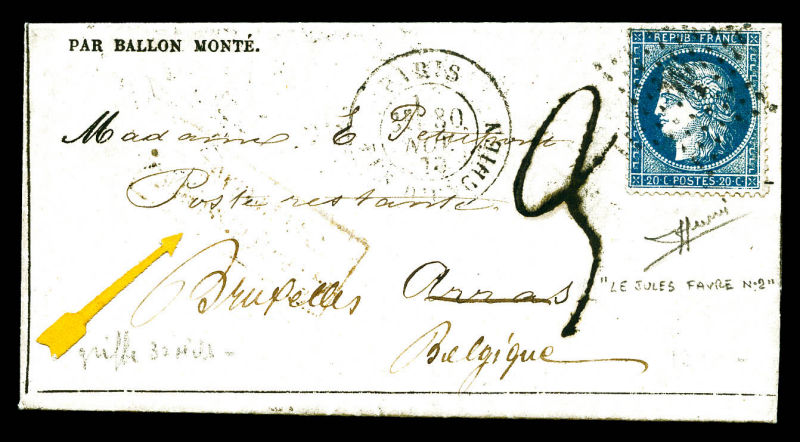 PAR BALLON MONTÉ.
PARIS
30
NOV
REPUB. FRANC.
20·C·POSTES·20·C·
Madame E
Poste restante
Bruxelles Arras
Belgique
"LE JULES FAVRE N°2"
griffe